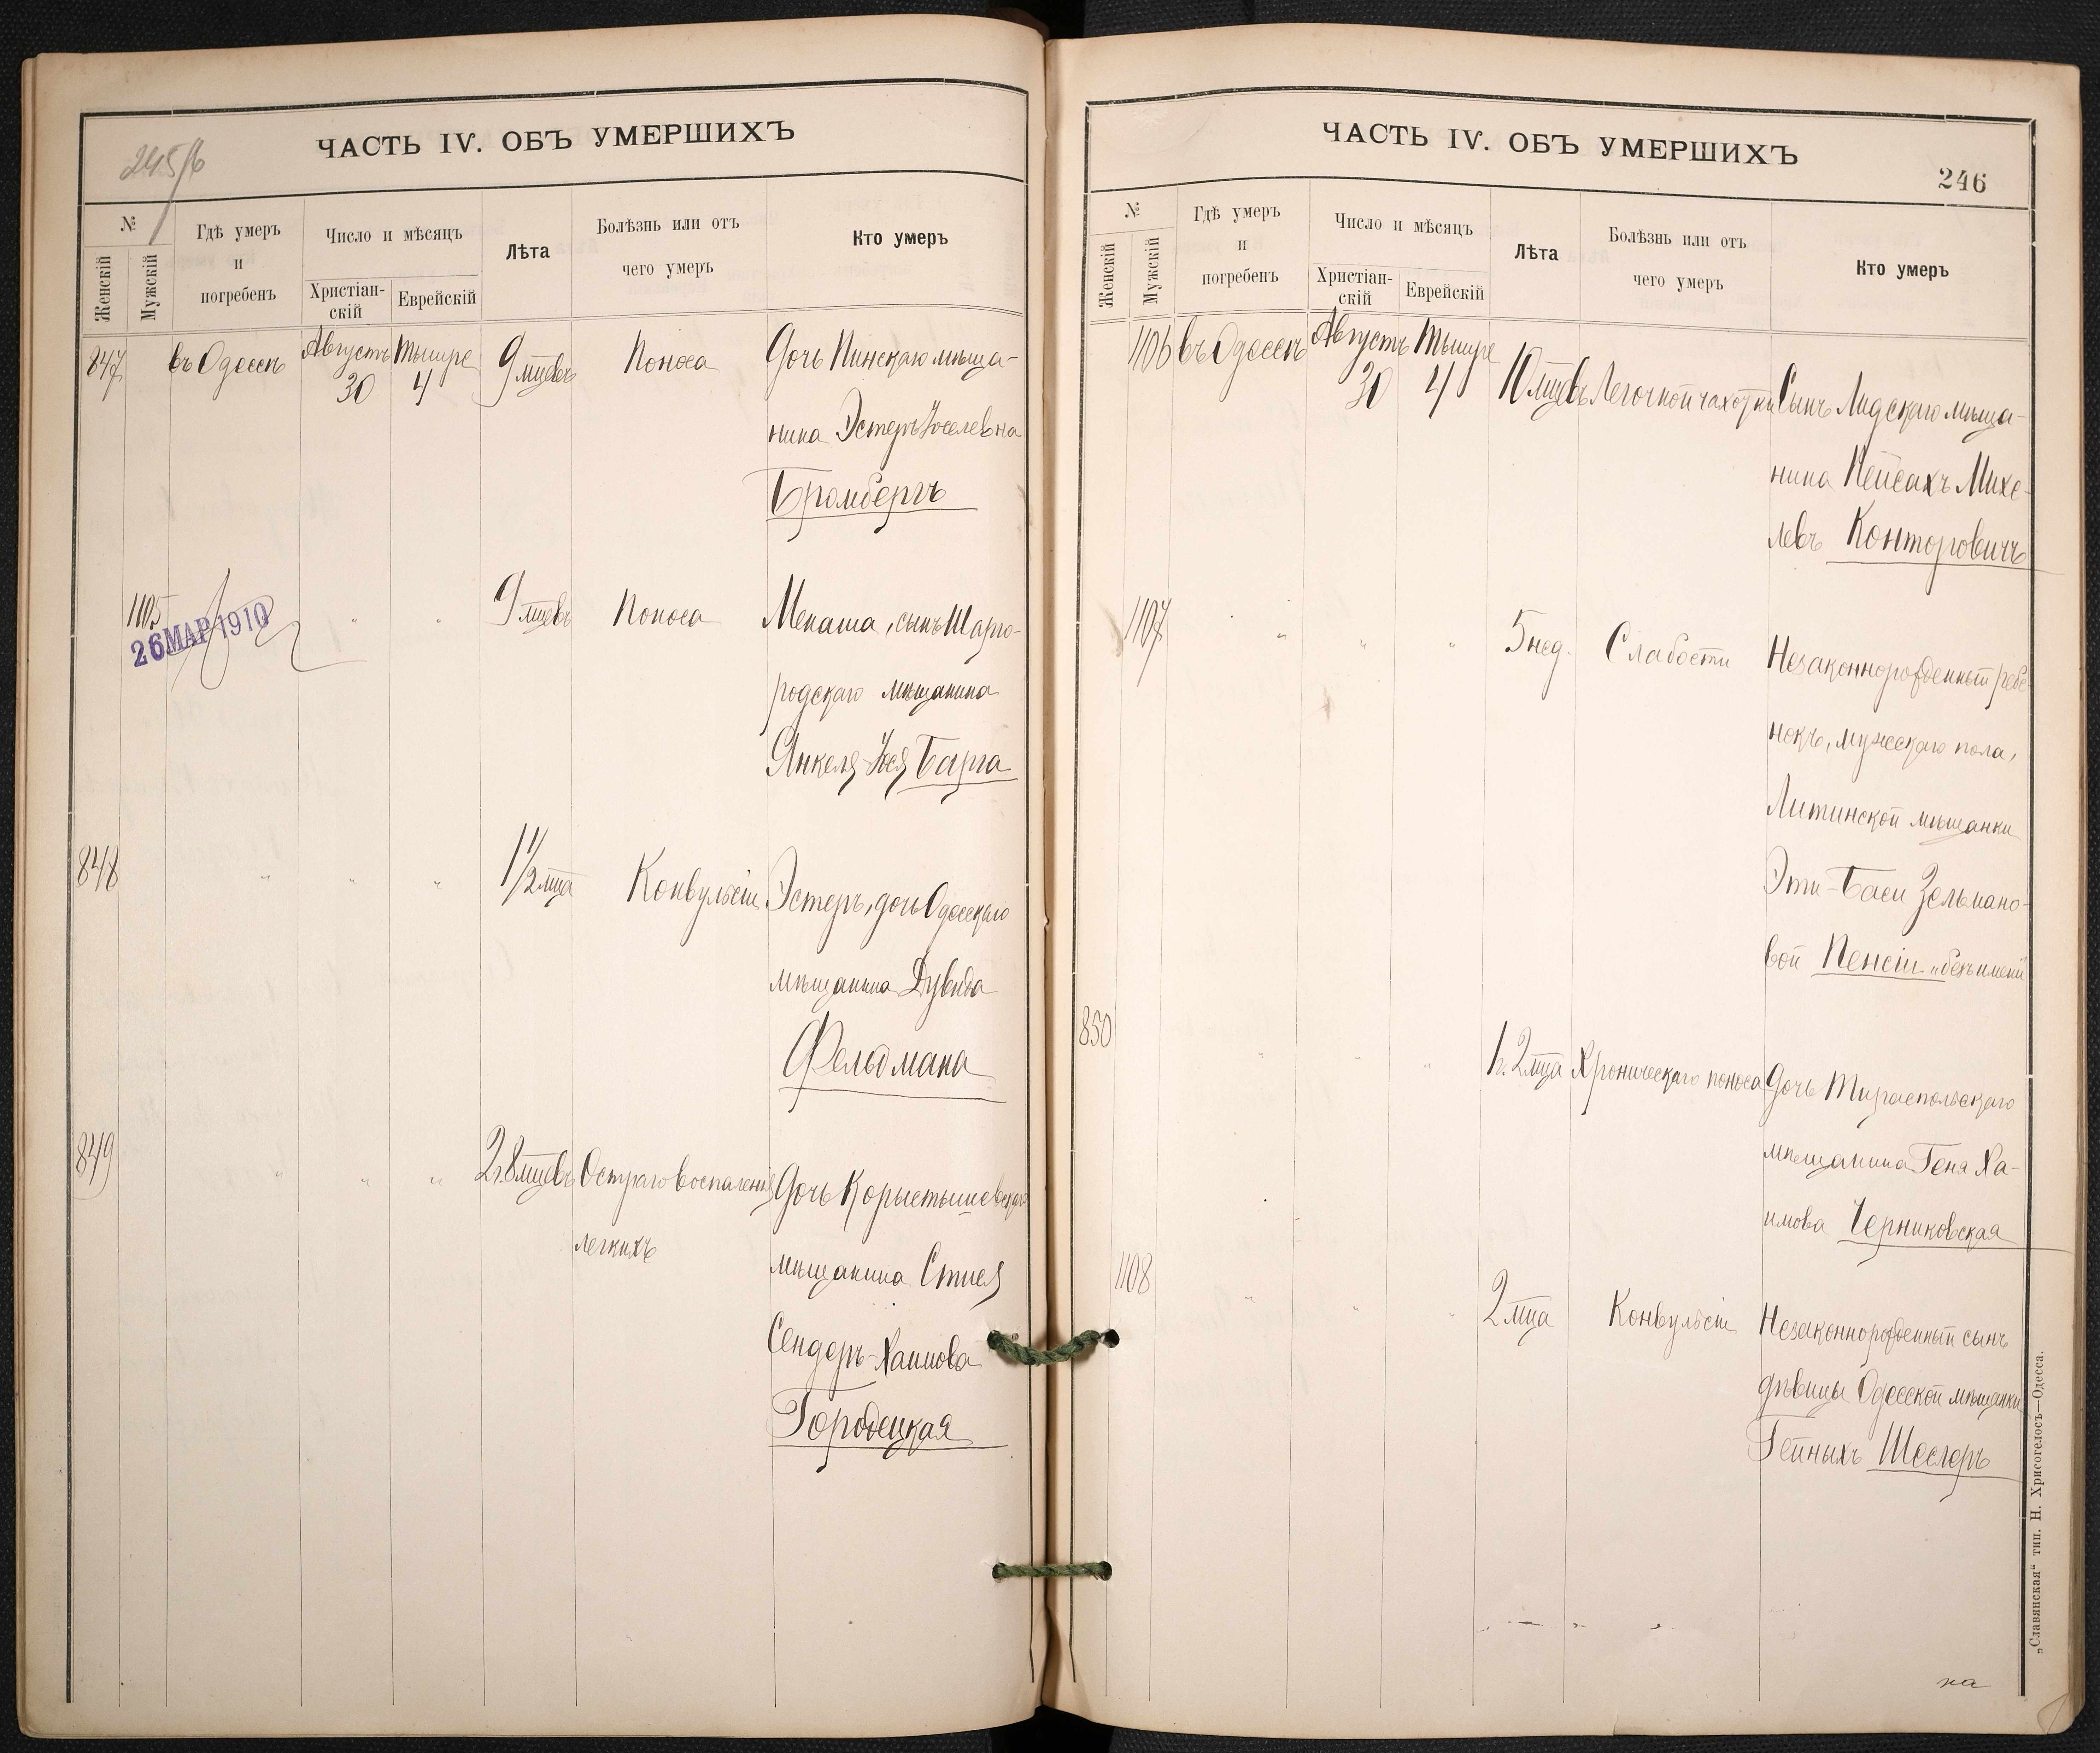 ЧАСТЬ IV. ОБЪ УМЕРШИХЪ
245/б
№
Женскій
Мужскій
Гдѣ умеръ
и
погребенъ
Число и мѣсяцъ
Христіан-
скій
Еврейскій
Лѣта
Болѣзнь или отъ
чего умеръ
Кто умеръ
847 въ Одессѣ Августъ Тышре 9 мцевъ Поноса Дочь Пинскаго мѣща-
30 4
нина Эстеръ Іоселевна
Бромбергъ
1105 " " 9 мцевъ Поноса Менаша, сынъ Шарго-
26 МАР 1910
родскаго мѣщанина
Янкеля-Іося Барга
848 " " " 1 1/2 мца Конвульсіи Эстеръ, дочь Одесскаго
мѣщанина Дувида
Фельдмана
849 " " " 2 г. 8 мцевъ Остраго воспаленія Дочь Корыстышевскаго
легкихъ
мѣщанина
Сендеръ-Хаимова
Городецкая
ЧАСТЬ IV. ОБЪ УМЕРШИХЪ
246
№
Женскій
Мужскій
Гдѣ умеръ
и
погребенъ
Число и мѣсяцъ
Христіан-
скій
Еврейскій
Лѣта
Болѣзнь или отъ
чего умеръ
Кто умеръ
1106 въ Одессѣ Августъ Тышре 10 мцевъ Легочной чахотки Сынъ Лидскаго мѣща-
30 4
нина Пейсахъ Михе-
левъ Конторовичъ
1107 " " " 5 нед. Слабости Незаконнорожденный ребе-
нокъ, мужескаго пола,
Литинской мѣщанки
Эти-Баси Зельмано-
вой Пенсіи "безъ имени"
850 " " " 1 г. 2 мца Хроническаго поноса Дочь Тираспольскаго
мѣщанина Геня Ха-
имова Черниковская
1108 " " " 2 мца Конвульсіи Незаконнорожденный сынъ
дѣвицы Одесской мѣщанки
Шеслеръ
„Славянская“ тип. Н. Хрисогелосъ—Одесса.
на